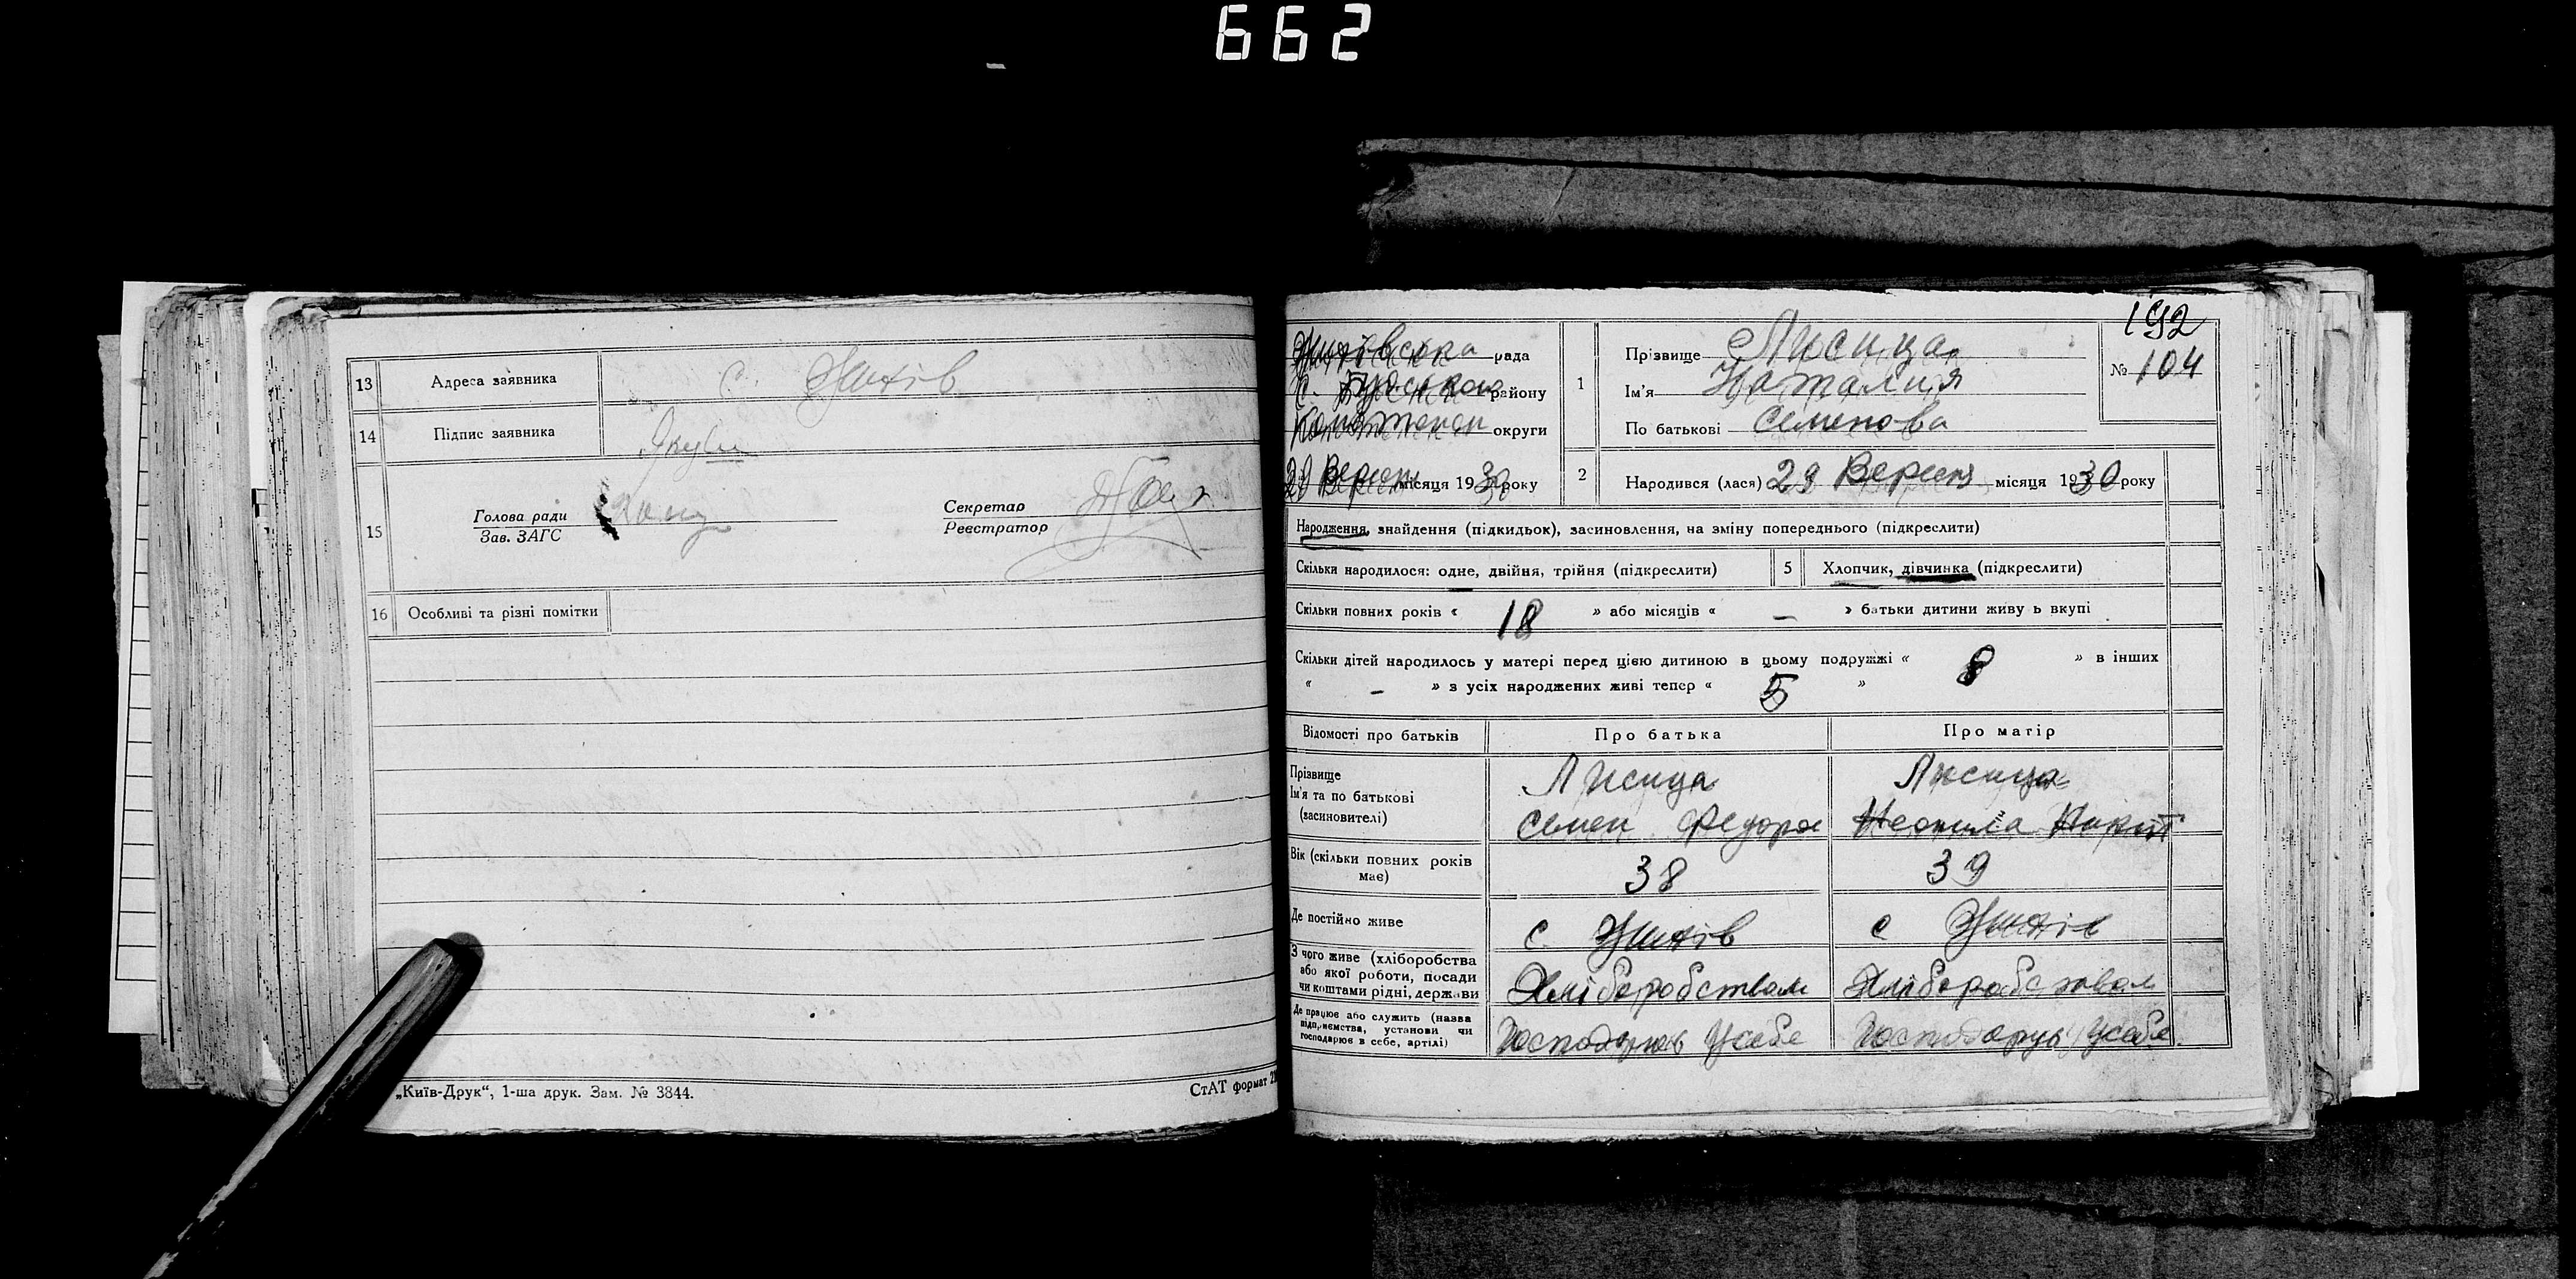 662
13 Адреса заявника с. Жихів
14 Підпис заявника
15 Голова ради
Зав. ЗАГС
Секретар
Реєстратор
16 Особливі та різні помітки
„Київ-Друк“, 1-ша друк. Зам. № 3844.
СтАТ формат
192
Жихівська рада
району
округи
місяця 1930 року
1 Прізвище Лисица
Ім'я Наталия
По батькові Семенова
№ 104
2 Народився (лася) 29 Вересня місяця 1930 року
Народження, знайдення (підкидьок), засиновлення, на зміну попереднього (підкреслити)
Скільки народилося: одне, двійня, трійня (підкреслити) 5 Хлопчик, дівчинка (підкреслити)
Скільки повних років « 18 » або місяців « – » батьки дитини живу ь вкупі
Скільки дітей народилось у матері перед цією дитиною в цьому подружжі « 8 » в інших
« – » з усіх народжених живі тепер « 5 »
Відомості про батьків Про батька Про матір
Прізвище Лисица Лисица
Ім'я та по батькові
(засиновителі) Семен Федоров
Вік (скільки повних років
має) 38 39
Де постійно живе с Жихів с Жихів
З чого живе (хліборобства
або якої роботи, посади
чи коштами рідні, держави Хліборобством Хліборобством
Де працює або служить (назва
підприємства, установи чи
господарює в себе, артілі) Господарює Усебе Господарує Усебе